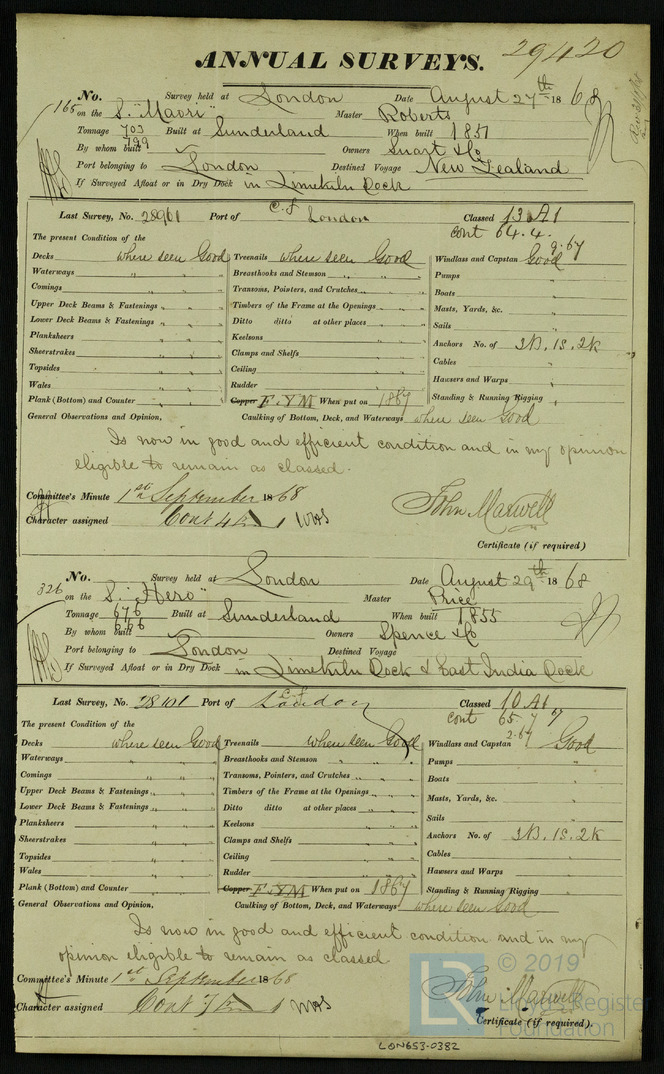 ANNUAL SURVEYS. 29420
No. Survey held at London Date August 27th 1868
165 on the S. "Maori" Master Roberts
Tonnage 703 799 Built at Sunderland When built 1851
By whom built Owners & Co
Port belonging to London Destined Voyage New Zealand
If Surveyed Afloat or in Dry Dock in Limekiln Dock
Last Survey, No. 28961 Port of C.F London Classed 13 A1
cont 64.4.
9.67
The present Condition of the
Decks where seen Good Treenails where seen Good Windlass and Capstan Good
Waterways " " Breasthooks and Stemson " " Pumps "
Comings " " Transoms, Pointers, and Crutches " Boats "
Upper Deck Beams & Fastenings " " Timbers of the Frame at the Openings " " Masts, Yards, &c. "
Lower Deck Beams & Fastenings " " Ditto ditto at other places " " Sails "
Planksheers " " Keelsons " " Anchors No. of 3B. 1S. 2K
Sheerstrakes " " Clamps and Shelfs " " Cables "
Topsides " " Ceiling " " Hawsers and Warps "
Wales " " Rudder " " Standing & Running Rigging "
Plank (Bottom) and Counter " " Copper F.YM When put on 1867
General Observations and Opinion, Caulking of Bottom, Deck, and Waterways where seen Good
Is now in good and efficient condition and in my opinion
eligible to remain as classed.
Committee's Minute 1st September 1868
Character assigned Cont 4 John Maxwell
Certificate (if required)
No. Survey held at London Date August 29th 1868
326 on the S. "Hero" Master Price
Tonnage 676 Built at Sunderland When built 1855
By whom built Owners Spence & Co
Port belonging to London Destined Voyage
If Surveyed Afloat or in Dry Dock in Limekiln Dock & East India Dock
Last Survey, No. 28101 Port of C.F London Classed 10 A1
cont 65.7
2.67
The present Condition of the
Decks where seen Good Treenails where seen Good Windlass and Capstan Good
Waterways " " Breasthooks and Stemson " " Pumps "
Comings " " Transoms, Pointers, and Crutches " " Boats "
Upper Deck Beams & Fastenings " " Timbers of the Frame at the Openings " " Masts, Yards, &c. "
Lower Deck Beams & Fastenings " " Ditto ditto at other places " " Sails "
Planksheers " " Keelsons " " Anchors No. of 3B. 1S. 2K
Sheerstrakes " " Clamps and Shelfs " " Cables "
Topsides " " Ceiling " " Hawsers and Warps "
Wales " " Rudder " " Standing & Running Rigging "
Plank (Bottom) and Counter " " Copper F.YM When put on 1867
General Observations and Opinion, Caulking of Bottom, Deck, and Waterways where seen Good
Is now in good and efficient condition and in my
opinion eligible to remain as classed
Committee's Minute 1st September 1868
Character assigned Cont 7 John Maxwell
Certificate (if required).
© 2019
LR Lloyd's Register
Foundation
LON653-0382